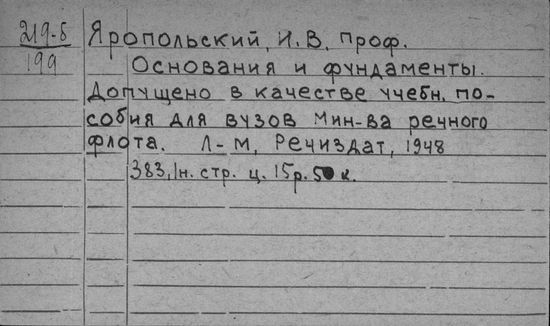 219-Б
199
Яропольский, И.В. проф.
Основания и фундаменты.
Допущено в качестве учебн. по-
собия для вузов Мин-ва речного
флота. Л-М, Речиздат, 1948
383, 1н. стр. ц. 15р. 50 к.